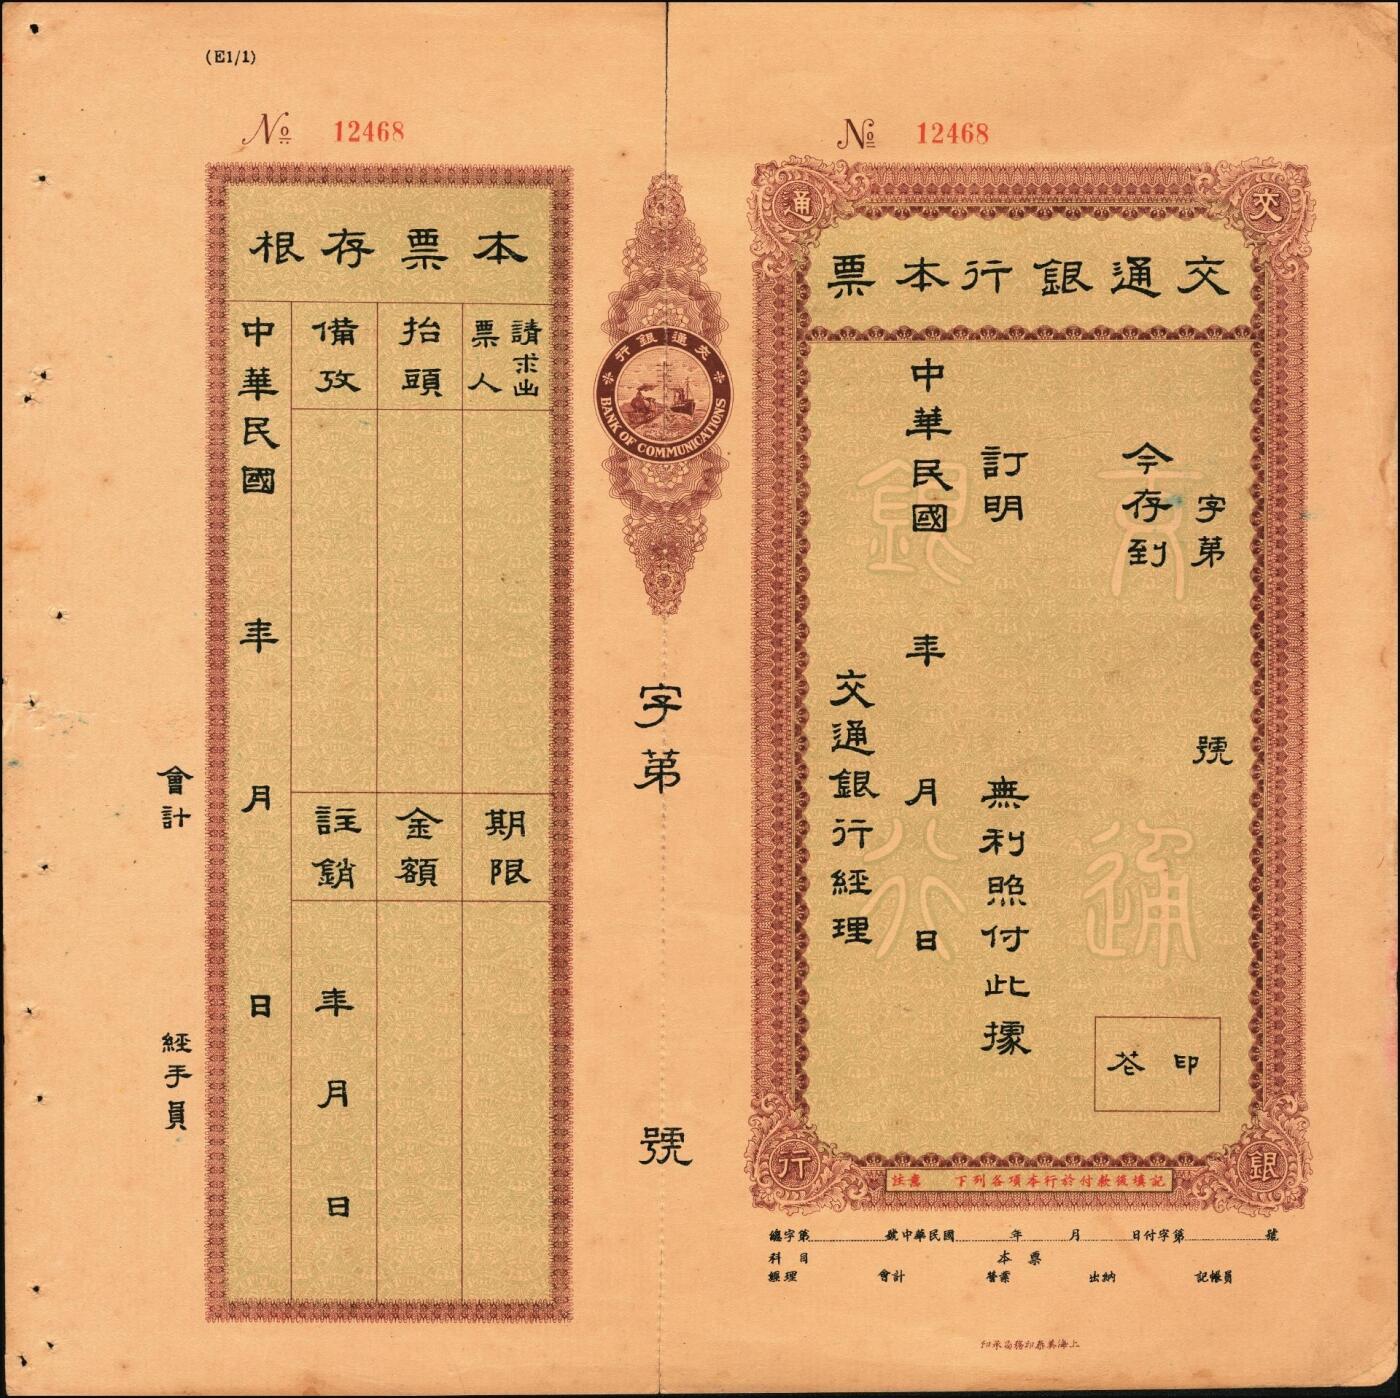 (E1/1)
№ 12468
№ 12468
本票存根
請求出票人
抬頭
備攷
中華民國 年 月 日
期限
金額
註銷
年 月 日
會計
經手員
交通銀行
BANK OF COMMUNICATIONS
字第 號
交通銀行
交通銀行本票
字第 號
今存到
訂明 無利照付此據
中華民國 年 月 日
交通銀行經理
印花
交通銀行
注意 下列各項本行於付款後填記
總字第 號中華民國 年 月 日付字第 號
科目 本票
經理 會計 營業 出納 記帳員